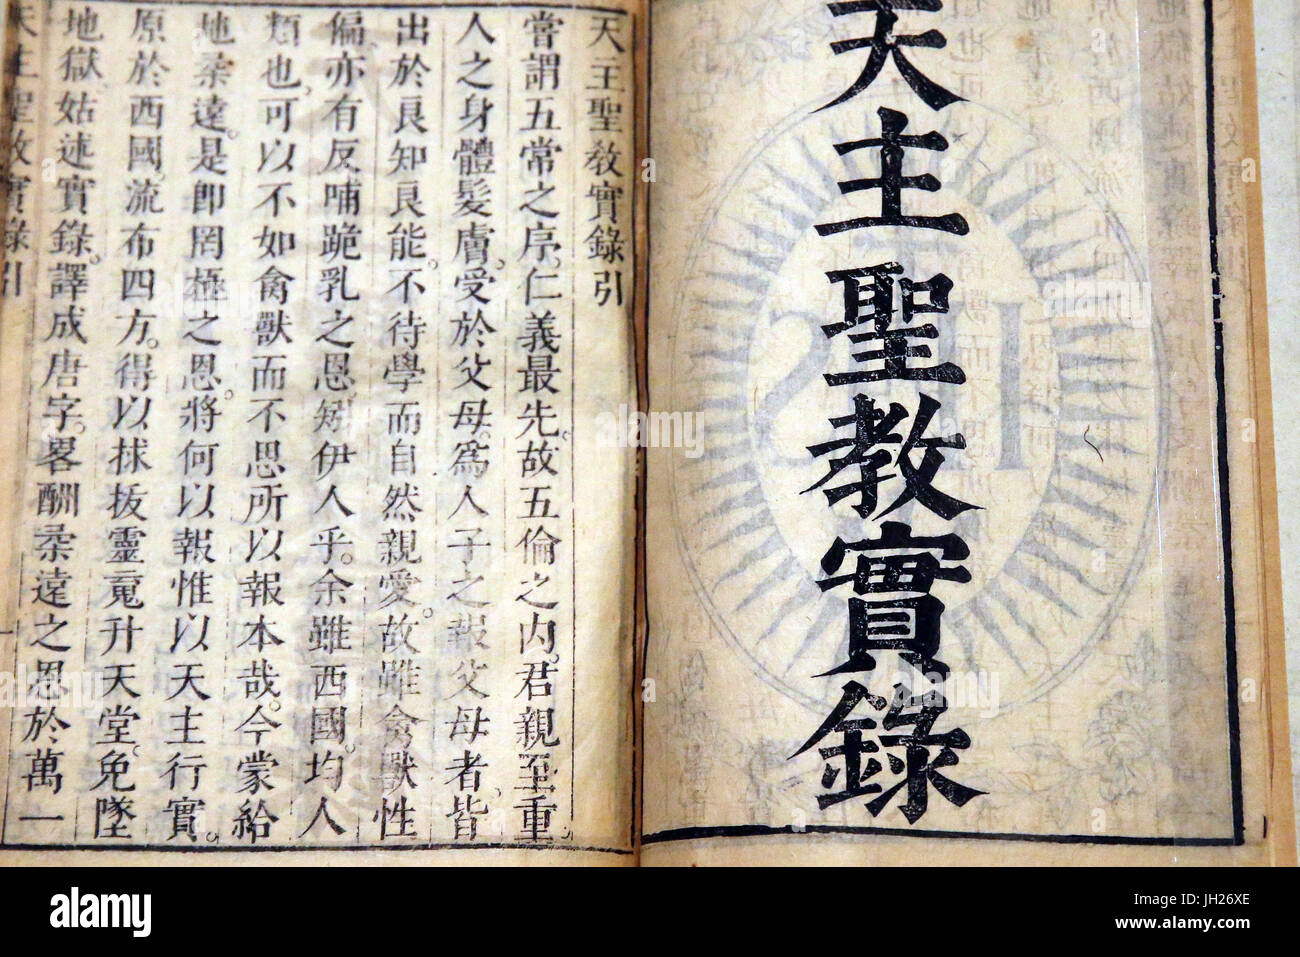 天主聖教實錄
天主聖教實錄引
嘗謂五常之序。仁義最先。故五倫之內。君親至重。
人之身體髮膚。受於父母。爲人子之報父母者。皆
出於良知良能。不待學而自然親愛。故雖禽獸性
偏。亦有反哺跪乳之恩。矧伊人乎。余雖西國。均人
類也。可以不如禽獸而不思所以報本哉。今蒙給
地柔遠。是卽罔極之恩。將何以報惟以天主行實。
原於西國。流布四方。得以捄拔靈䰟升天堂。免墜
地獄。姑述實錄。譯成唐字。畧酬柔遠之恩於萬一
天主聖教實錄引 一
alamy
alamy stock photo
JH26XE
www.alamy.com